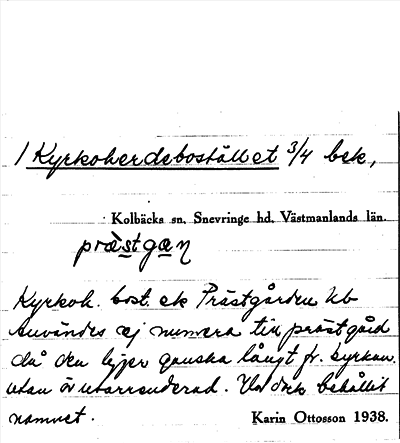 1 Kyrkoherdebostället 3/4 bek,
Kolbäcks sn. Snevringe hd. Västmanlands län.
prästgaɳ
Kyrkoh. bost. ek Prästgården Kb
Användes ej numera till prästgård
då den ligger ganska långt fr. kyrkan
utan är utarrenderad. Har dock behållit
namnet.
Karin Ottosson 1938.